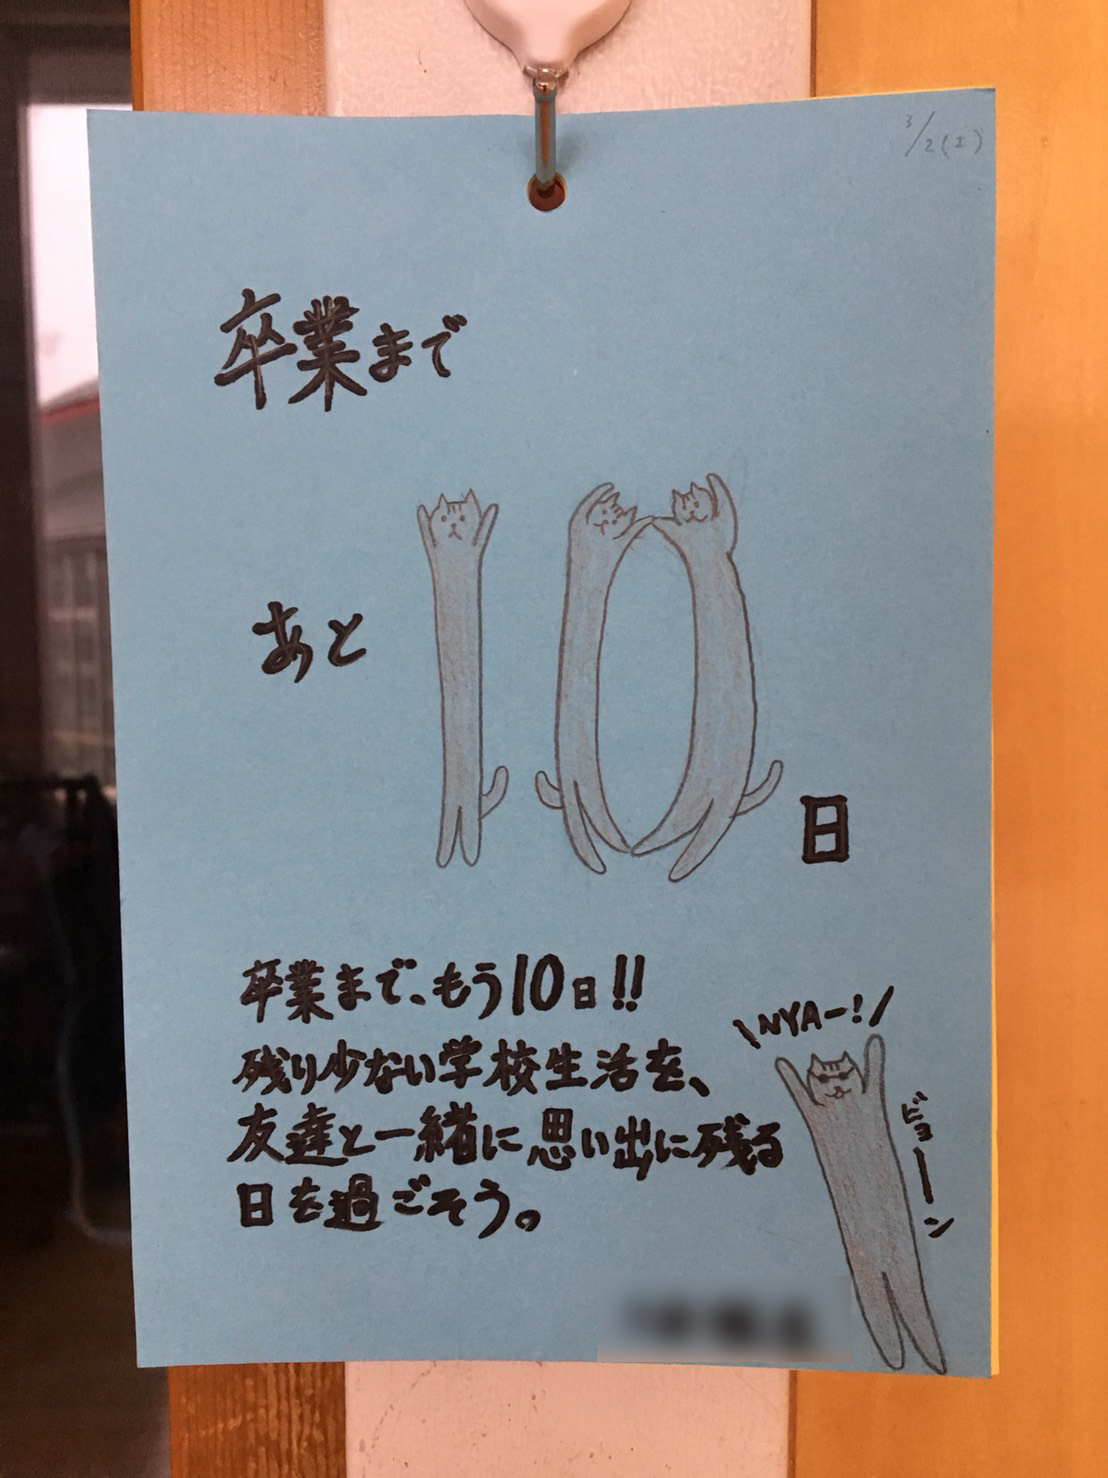 3/2(土)
卒業まで
あと 10 日
卒業まで、もう10日!!
残り少ない学校生活を、
友達と一緒に思い出に残る
日を過ごそう。
\NYAー!/
ビョーン